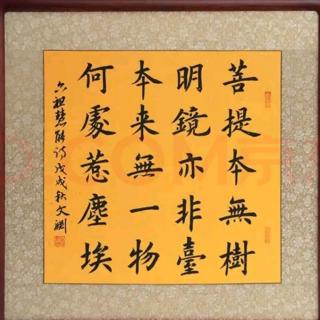 菩提本無樹
明鏡亦非臺
本来無一物
何處惹塵埃
六祖慧能詩戊戌秋文